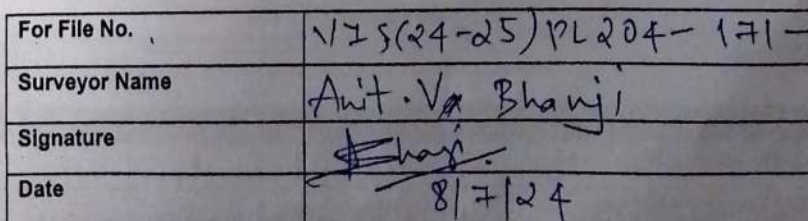 For File No. VIS(24-25)PL204-171-
Surveyor Name Anit. Bhanji
Signature
Date 8/7/24